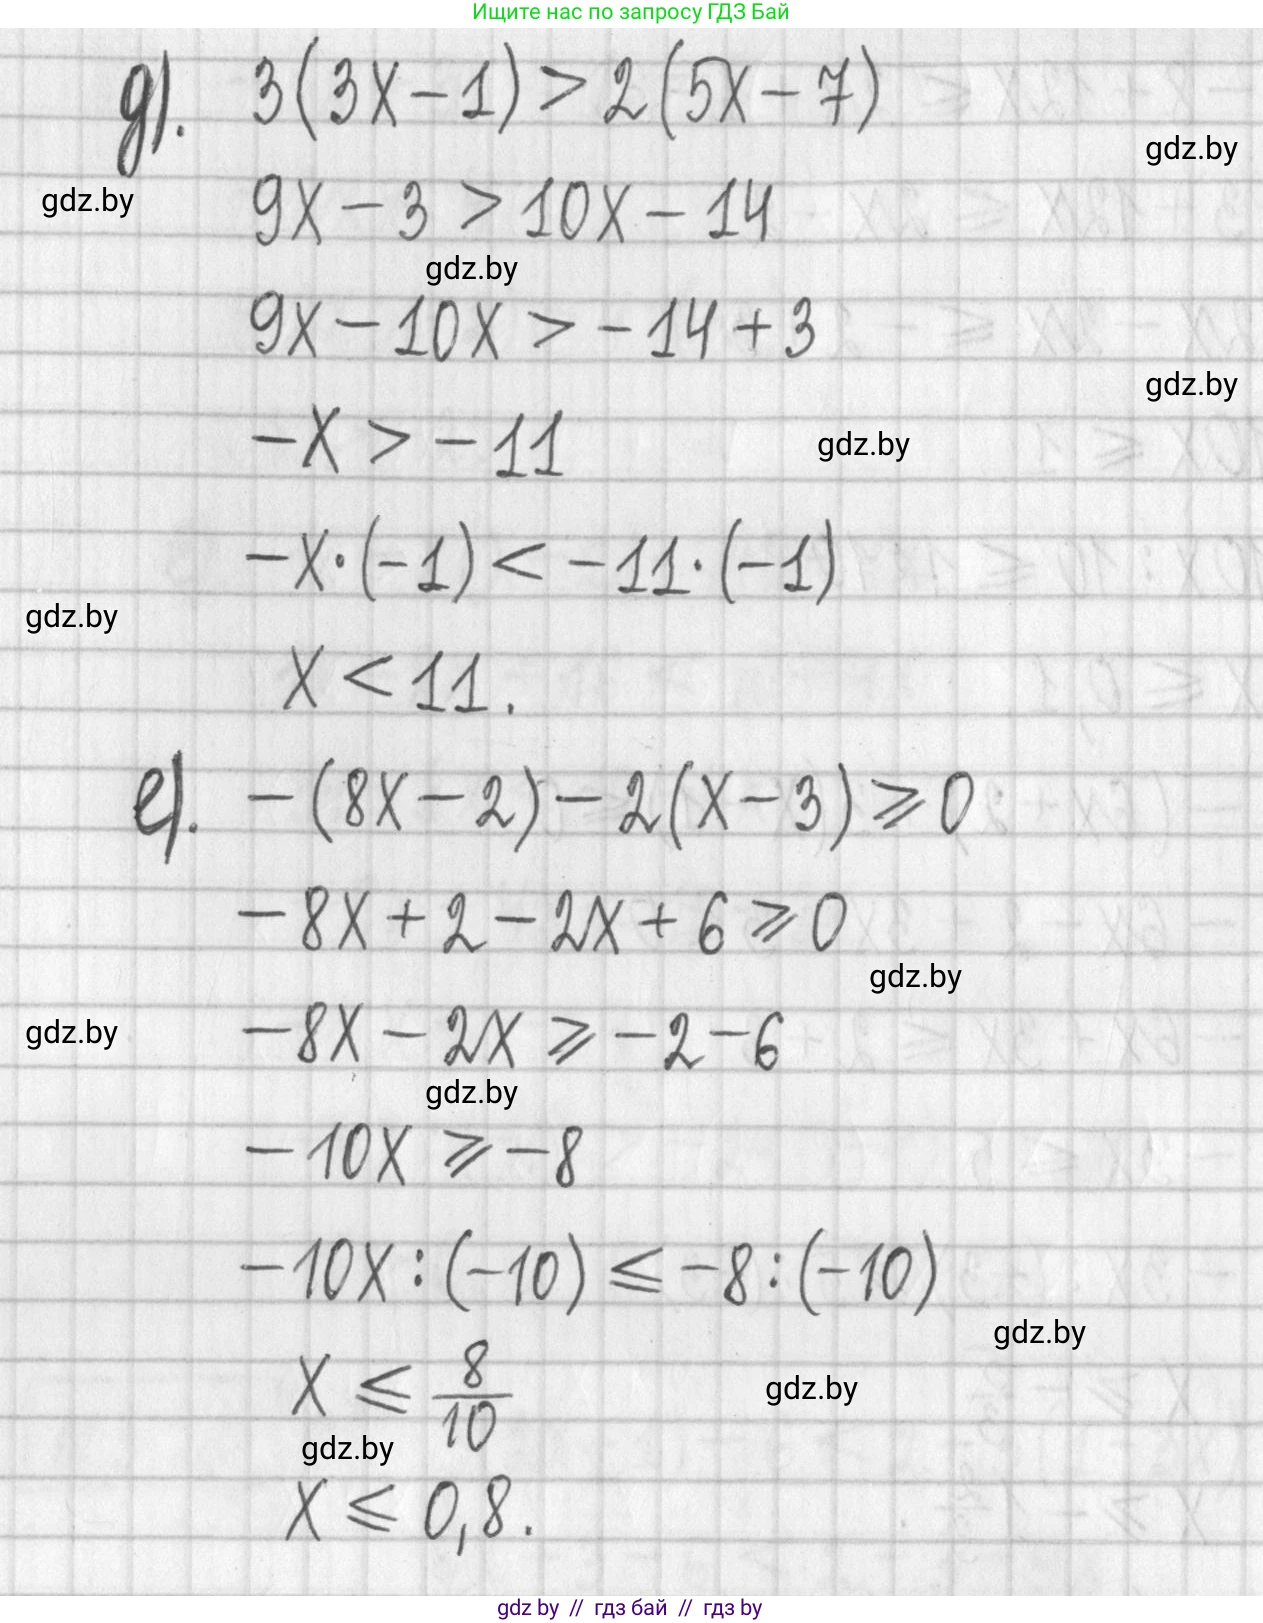 Ищите нас по запросу ГДЗ Бай
д). 3(3x-1)>2(5x-7)
gdz.by
gdz.by
9x-3>10x-14
gdz.by
9x-10x>-14+3
gdz.by
-x>-11
gdz.by
-x·(-1)<-11·(-1)
gdz.by
x<11.
е). -(8x-2)-2(x-3)⩾0
-8x+2-2x+6⩾0
gdz.by
gdz.by
-8x-2x⩾-2-6
gdz.by
-10x⩾-8
-10x:(-10)⩽-8:(-10)
gdz.by
x⩽8/10
gdz.by
gdz.by
x⩽0,8.
gdz by // гдз бай // гдз by